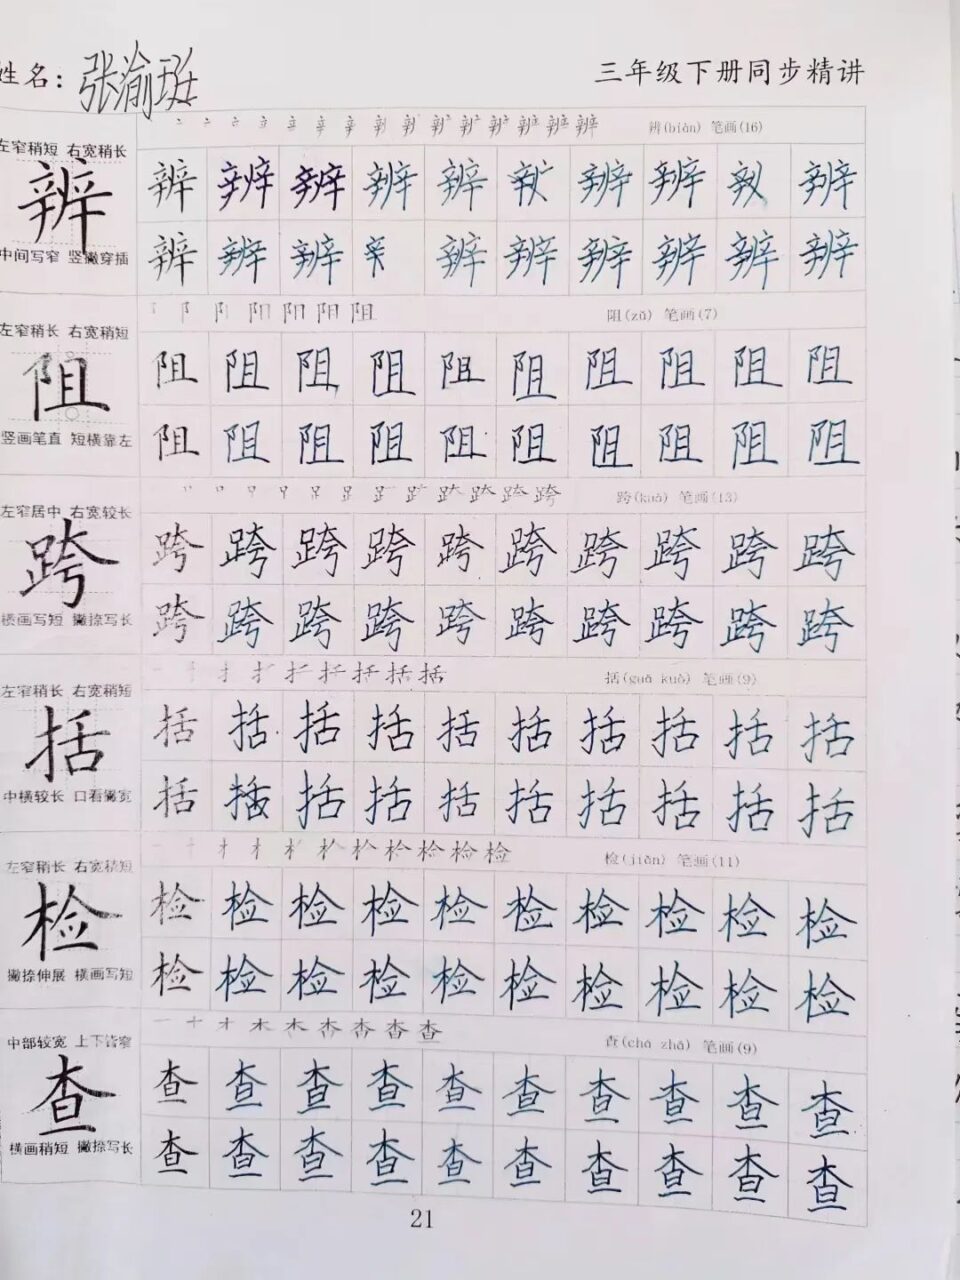 姓名：张渝班 三年级下册同步精讲
辨(biàn) 笔画(16)
左窄稍短 右宽稍长
辨
中间写窄 竖撇穿插
辨 辨 辨 辨 辨 辨 辨 辨
辨 辨 辨 辨 辨 辨 辨 辨 辨
阻(zǔ) 笔画(7)
左窄稍长 右宽稍短
阻
竖画笔直 短横靠左
阻 阻 阻 阻 阻 阻 阻 阻 阻 阻
阻 阻 阻 阻 阻 阻 阻 阻 阻 阻
跨(kuà) 笔画(13)
左窄居中 右宽较长
跨
横画写短 撇捺写长
跨 跨 跨 跨 跨 跨 跨 跨 跨 跨
跨 跨 跨 跨 跨 跨 跨 跨 跨 跨
括(guā kuò) 笔画(9)
左窄稍长 右宽稍短
括
中横较长 口看撇宽
括 括 括 括 括 括 括 括 括 括
括 括 括 括 括 括 括 括 括 括
检(jiǎn) 笔画(11)
左窄稍长 右宽稍短
检
撇捺伸展 横画写短
检 检 检 检 检 检 检 检 检 检
检 检 检 检 检 检 检 检 检 检
查(chá zhā) 笔画(9)
中部较宽 上下皆窄
查
横画稍短 撇捺写长
查 查 查 查 查 查 查 查 查 查
查 查 查 查 查 查 查 查 查 查
21